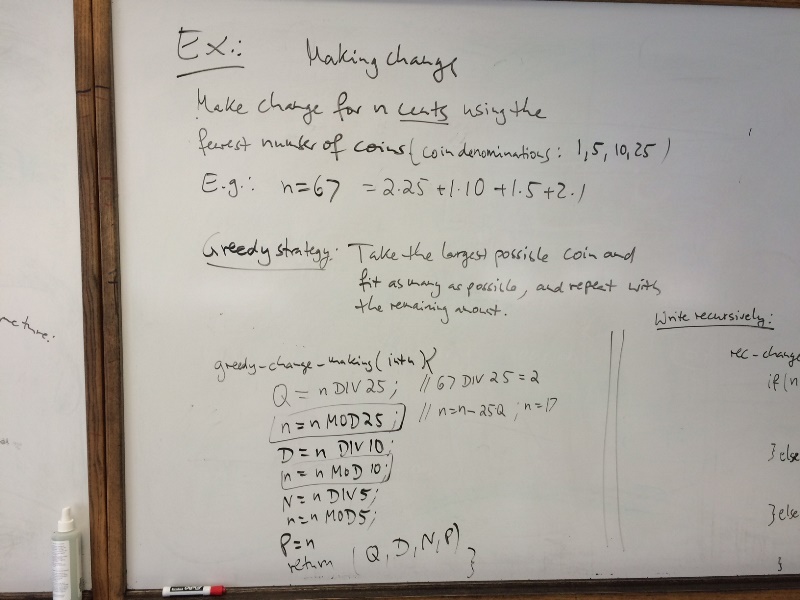 Ex.: Making change
Make change for n cents using the
fewest number of coins (coin denominations: 1, 5, 10, 25)
E.g.: n=67 = 2·25 + 1·10 + 1·5 + 2·1
Greedy strategy: Take the largest possible coin and
fit as many as possible, and repeat with
the remaining amount.
greedy-change-making(int n){
Q = n DIV 25; // 67 DIV 25 = 2
n = n MOD 25; // n=n-25Q ; n=17
D = n DIV 10;
n = n MOD 10;
N = n DIV 5;
n = n MOD 5;
P = n
return (Q, D, N, P)
}
Write recursively:
rec-change
if (n
} else
} else
}